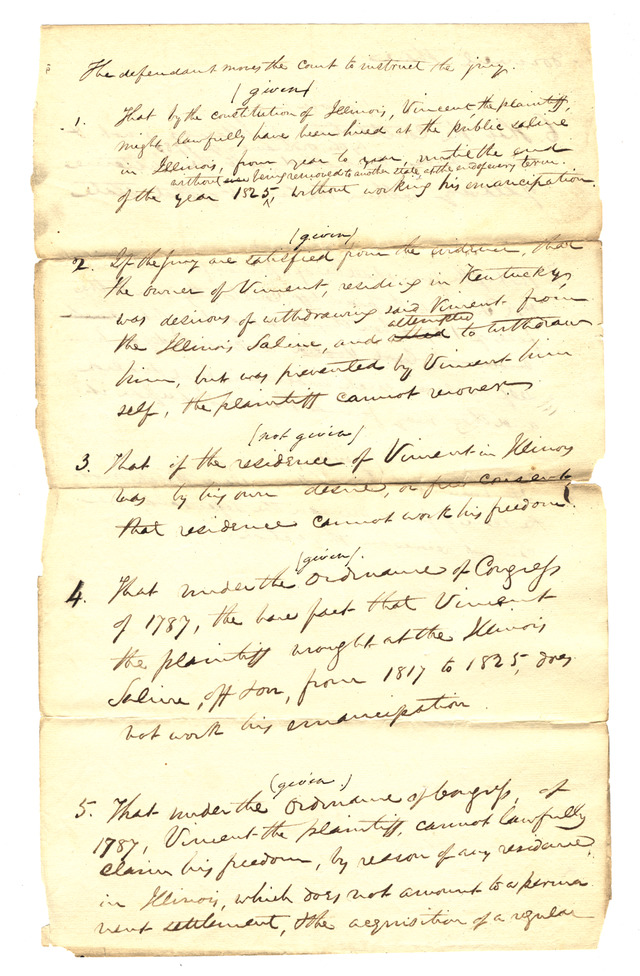 The defendant moves the court to instruct the jury.
(given)
1. That by the constitution of Illinois, Vincent, the plaintiff,
might lawfully have been hired at the public saline
in Illinois, from year to year, until the end
without ever being removed to another state at the end of every term.
of the year 1825, without working his emancipation.
(given)
2. If the Jury are satisfied from the evidence, that
the owner of Vincent, residing in Kentucky,
was desirous of withdrawing said Vincent from
attempted
the Illinois Saline, and to withdraw
him, but was prevented by Vincent him
self, the plaintiff cannot recover.
(not given)
3. That if the residence of Vincent in Illinois
was by his own desire, or free consent
that residence cannot work his freedom.
(given).
4. That under the Ordinance of Congress
of 1787, the bare fact that Vincent
the plaintiff wrought at the Illinois
Saline, off & on, from 1817 to 1825, does
not work his emancipation.
(given)
5. That under the Ordinance of Congress, of
1787, Vincent the plaintiff, cannot lawfully
claim his freedom, by reason of any residence,
in Illinois, which does not amount to a perma
nent settlement, & the acquisition of a regular